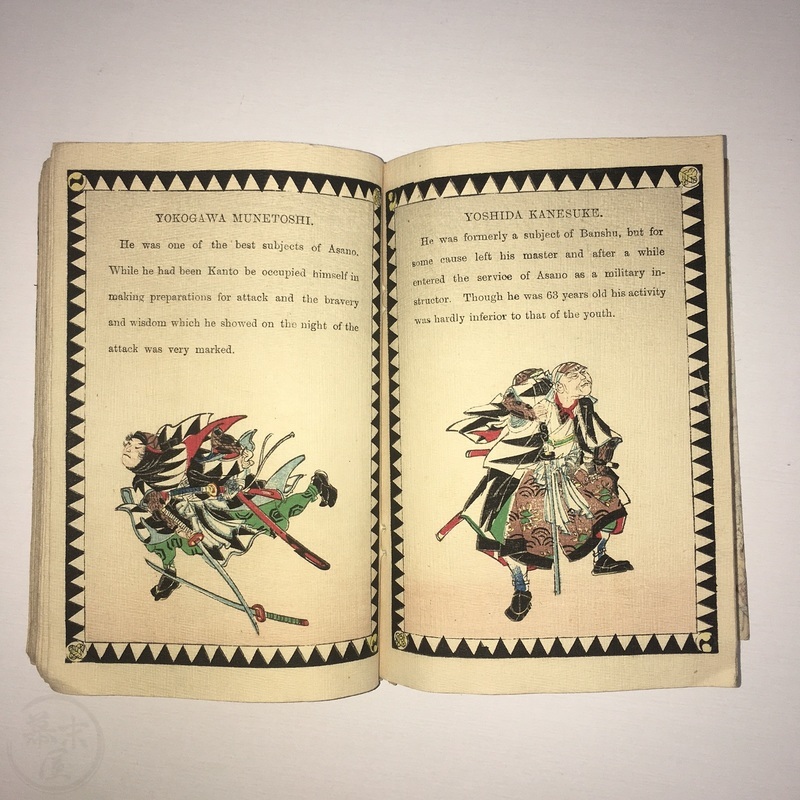 YOKOGAWA MUNETOSHI.
He was one of the best subjects of Asano.
While he had been Kanto be occupied himself in
making preparations for attack and the bravery
and wisdom which he showed on the night of the
attack was very marked.
YOSHIDA KANESUKE.
He was formerly a subject of Banshu, but for
some cause left his master and after a while
entered the service of Asano as a military in-
structor. Though he was 63 years old his activity
was hardly inferior to that of the youth.